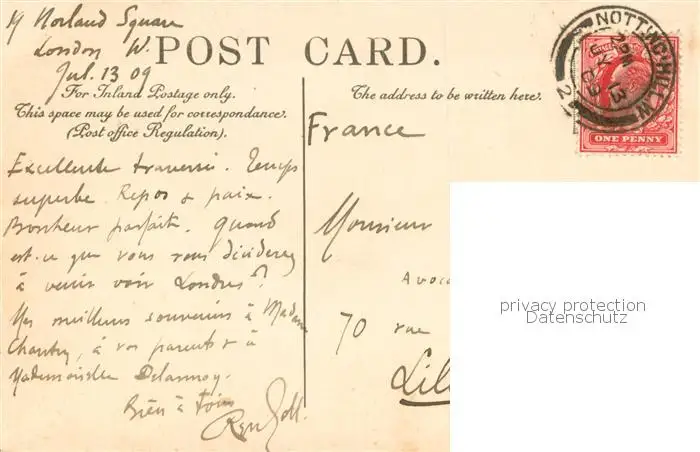 19 Norland Square
London W.
Jul. 13 09
POST CARD.
For Inland Postage only.
This space may be used for correspondance.
(Post office Regulation).
The address to be written here.
NOTTING-HILL.W
2 PM
JY 13
09
24
ONE PENNY
France
Excellente traversée. Temps
superbe. Repos & paix.
Bonheur parfait. Quand
est-ce que vous vous déciderez
à venir voir Londres?
Mes meilleurs souvenirs à Madame
à vos parents & à
Mademoiselle Delannoy.
Bien à toi
Monsieur
Avoca
70 rue
Lil
privacy protection
Datenschutz